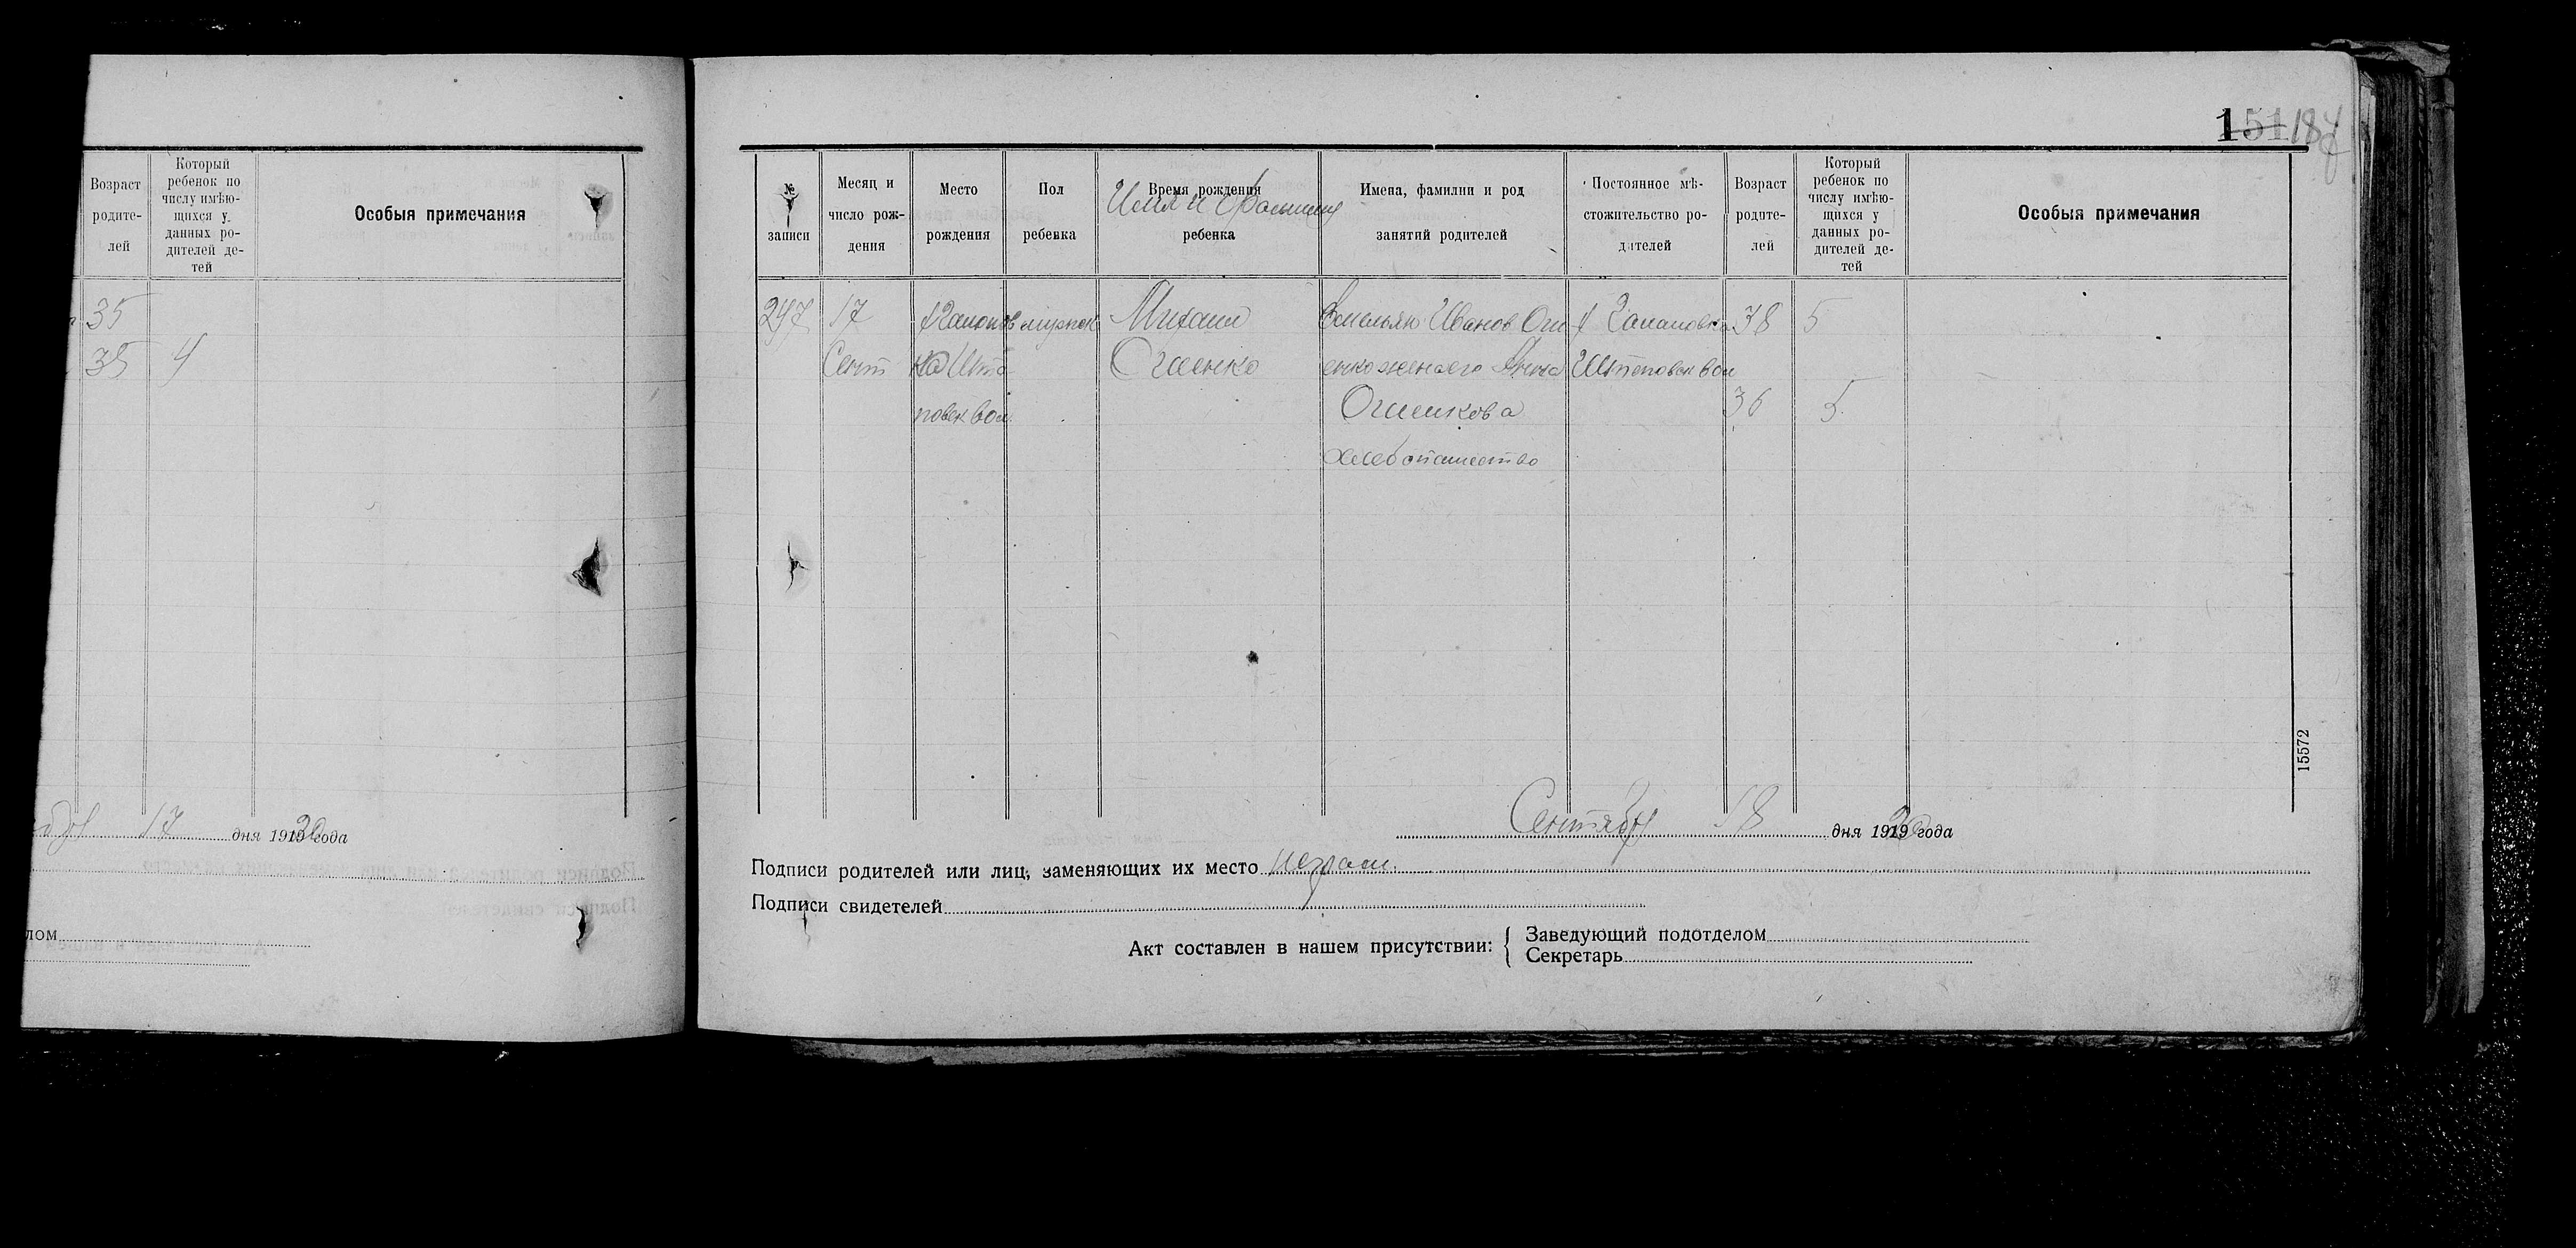 Возраст
родите-
лей
Который
ребенок по
числу имѣю-
щихся у
данных ро-
дителей де-
тей
Особыя примечания
35
35 4
17 дня 1920 года
лом
151 187
№
записи
Месяц и
число рож-
дения
Место
рождения
Пол
ребенка
Время рождения
Имя и фамилия
ребенка
Имена, фамилии и род
занятий родителей
Постоянное мѣ-
стожительство ро-
дителей
Возраст
родите-
лей
Который
ребенок по
числу имѣю-
щихся у
данных ро-
дителей де-
тей
Особыя примечания
247
17
Сент
повск вол.
мужск
Михаил
Емельян Иванов
жена его Анна
хлебопашество
вол
38
36
5
5
15572
Сентября 18 дня 1920 года
Подписи родителей или лиц, заменяющих их место неграм.
Подписи свидетелей
Акт составлен в нашем присутствии:
Заведующий подотделом
Секретарь